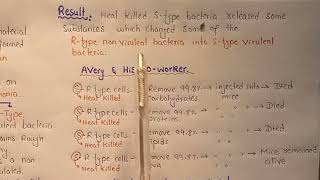 Result. Heat Killed S-type bacteria released some
Substances which changed some of the
R-type non virulent bacteria into S-type virulent
bacteria.
Avery & His co-worker.
R type cells - Remove 99.8% injected into → Died
Heat Killed carbohydrates mice
R type cells - Remove 99.8% " " → Died.
Heat Killed lipids
R type cells - Remove 99.8% " " → Died.
Heat Killed
R type cells - Remove 99.8% " " → Mice remained
Heat Killed alive
material
formed
on
Type
bacteria
Rough
a non